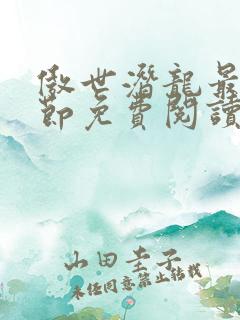 傲世潛龍最
節免費閱讀
山田圭子
未经同意禁止转载